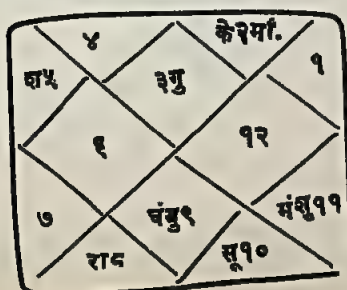 ४
के२मां.
श५
३गु
१
६
१२
७
चंबु९
मंशु११
रा८
सू१०